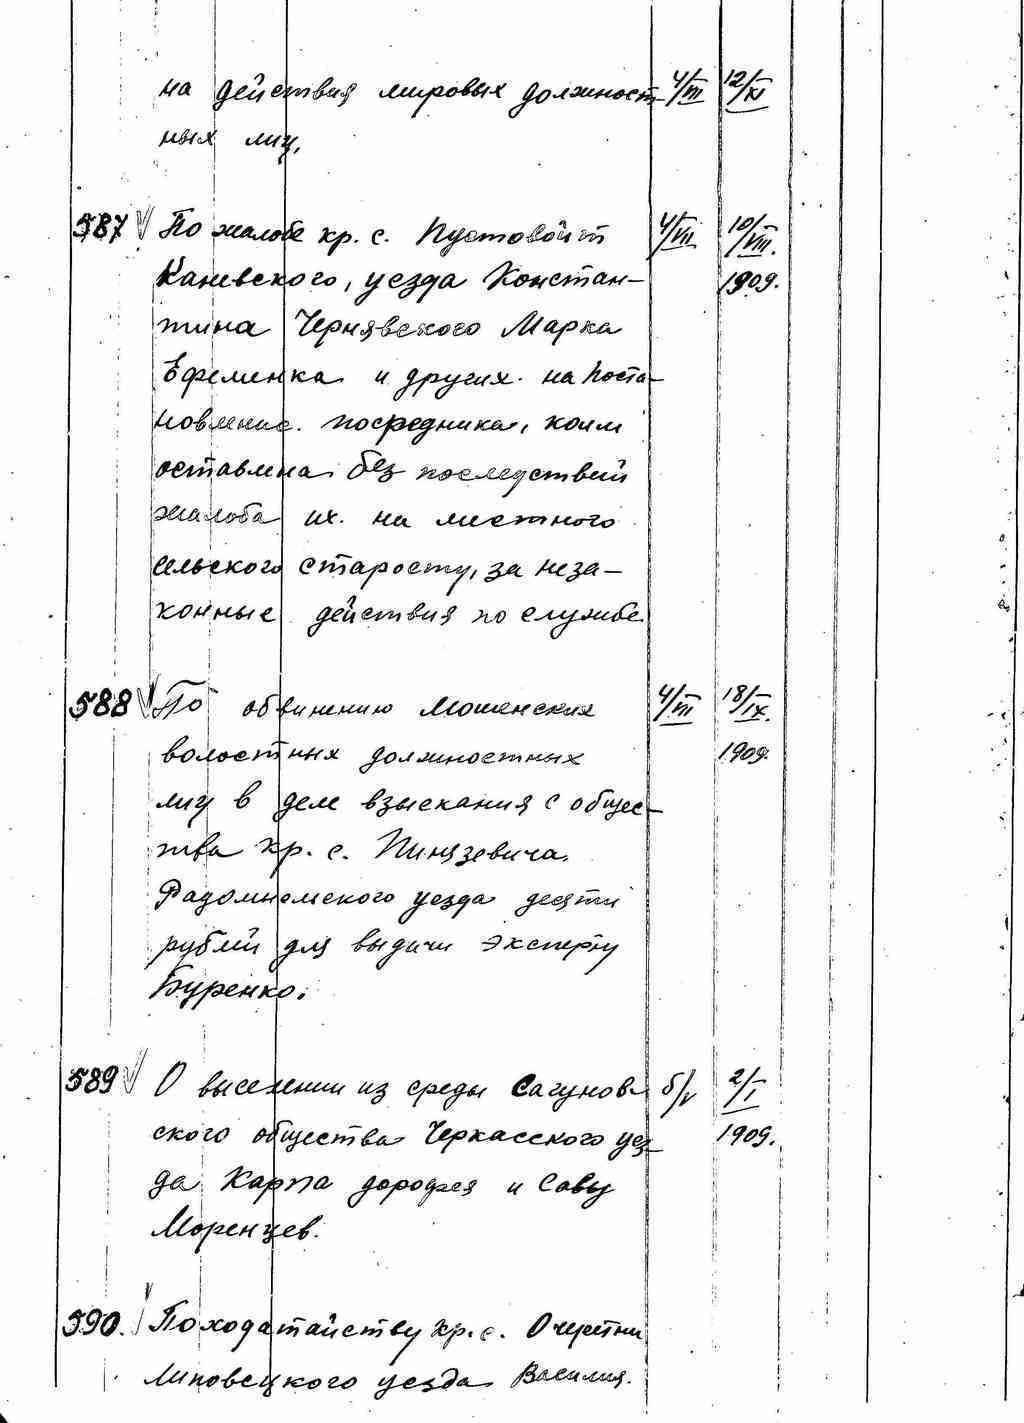 на действия мировых должност- 4/III 12/XI
ных лиц.
587 По жалобе кр. с. Пустовойт 4/VII 10/VIII.
Каневского, уезда Констан- 1909.
тина Чернявского Марка
Ефременка и других. на поста-
новление. посредника, коим
оставлена без последствий
жалоба их. на местного
сельского старосту, за неза-
конные действия по службе
588 По обвинению Мошенских 4/III 18/IX.
волостных должностных 1909.
лиц в деле взыскания с общес-
тва кр. с. Пинязевича.
Радомысльского уезда десяти
рублей для выдачи эксперту
Буренко.
589 О выселении из среды Сагунов- 6/V 2/I
ского общества Черкасского уез- 1909.
да Карпа дорофея и Савы
Моренцев.
590. По ходатайству кр. с. Очеретни
Липовецкого уезда Василия.